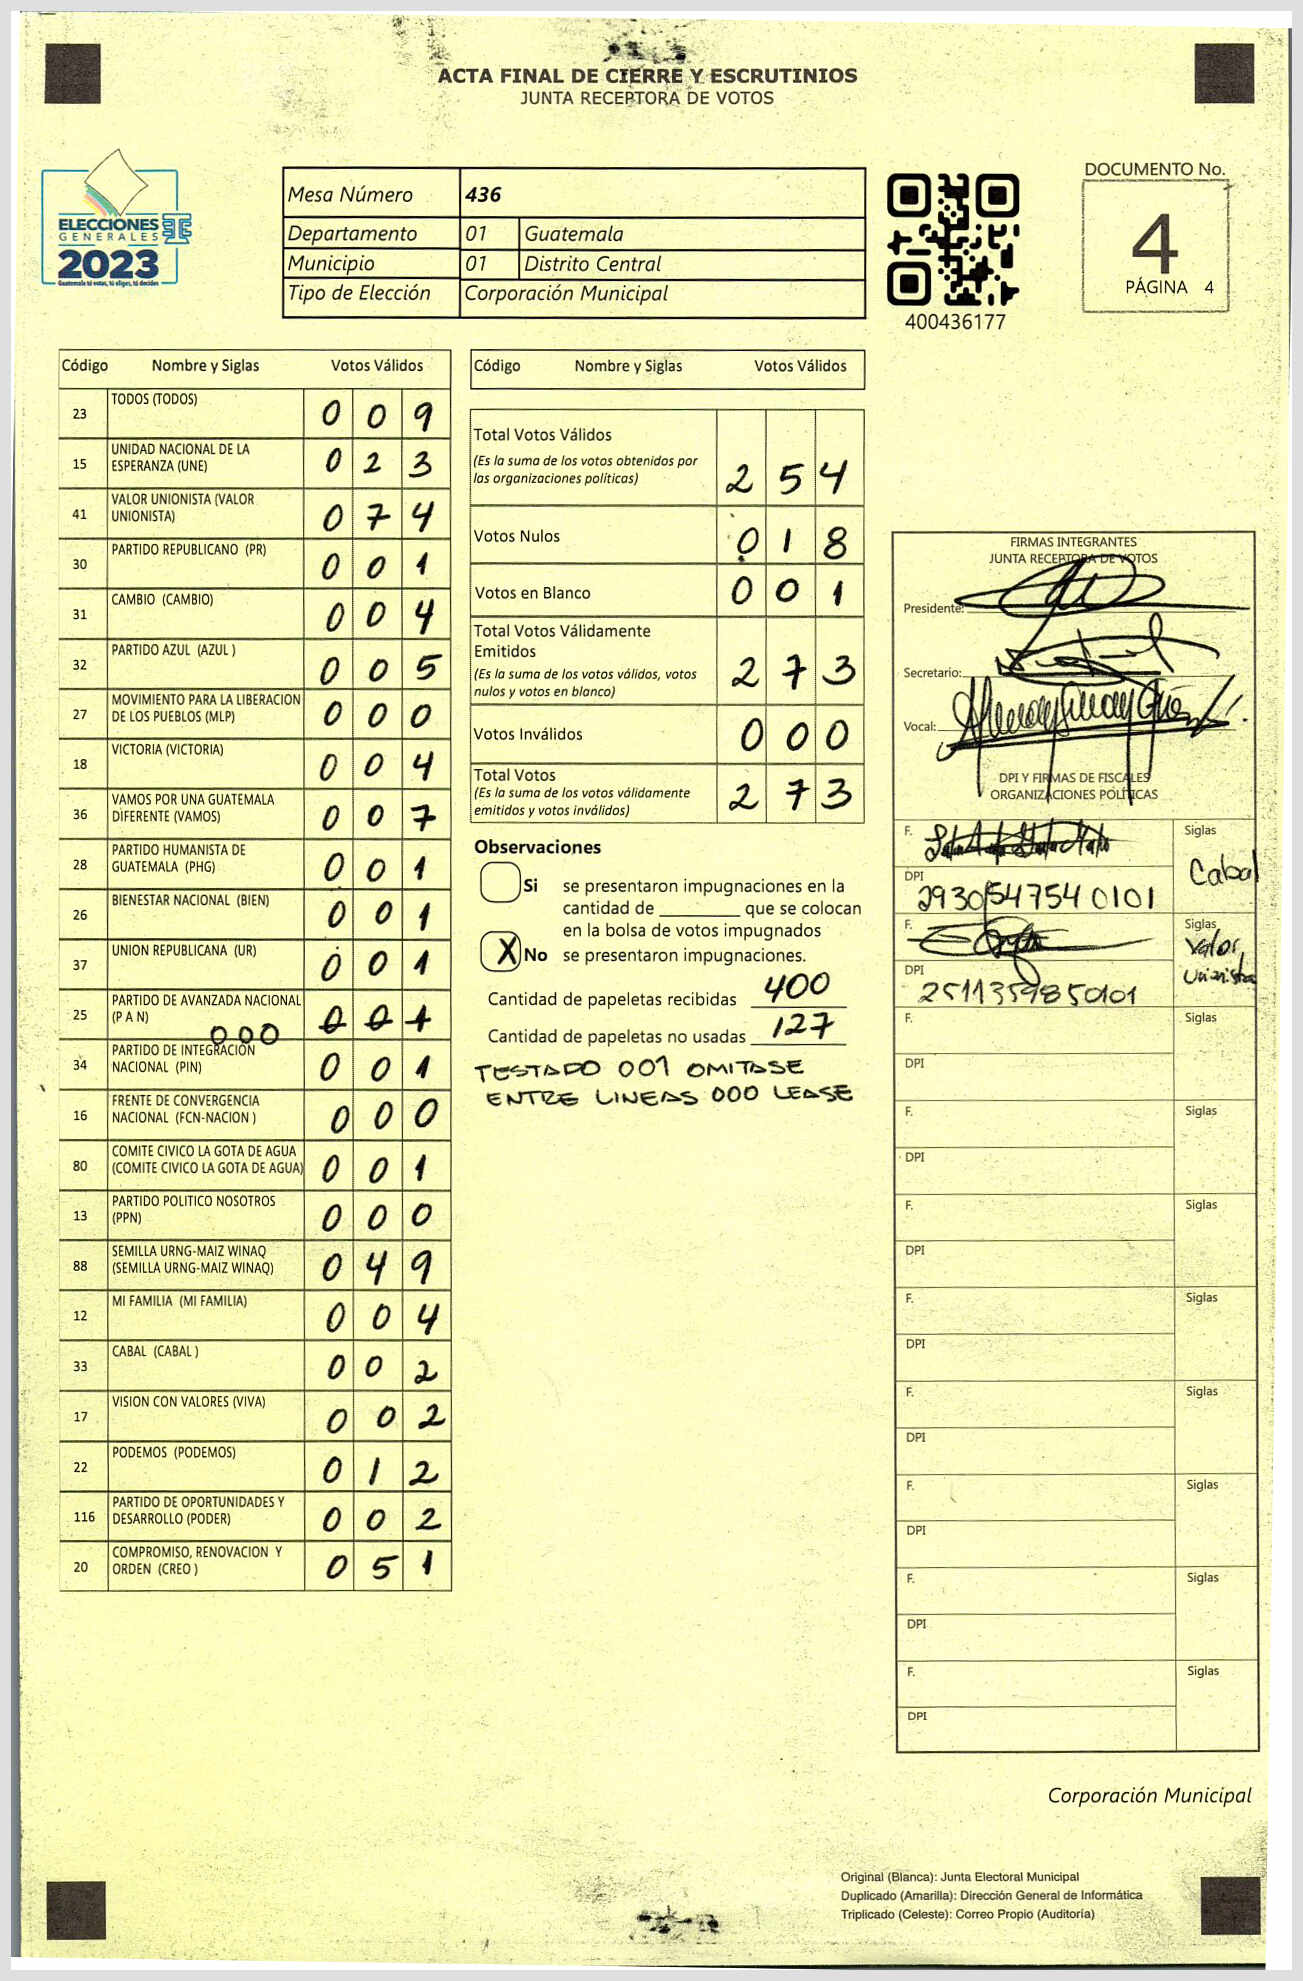 ACTA FINAL DE CIERRE Y ESCRUTINIOS
JUNTA RECEPTORA DE VOTOS
ELECCIONES
GENERALES
2023
Guatemala tú votas, tú eliges, tú decides
Mesa Número 436
Departamento 01 Guatemala
Municipio 01 Distrito Central
Tipo de Elección Corporación Municipal
400436177
DOCUMENTO No.
4
PÁGINA 4
Código Nombre y Siglas Votos Válidos
23 TODOS (TODOS) 0 0 9
15 UNIDAD NACIONAL DE LA
ESPERANZA (UNE) 0 2 3
41 VALOR UNIONISTA (VALOR
UNIONISTA) 0 7 4
30 PARTIDO REPUBLICANO (PR) 0 0 1
31 CAMBIO (CAMBIO) 0 0 4
32 PARTIDO AZUL (AZUL ) 0 0 5
27 MOVIMIENTO PARA LA LIBERACION
DE LOS PUEBLOS (MLP) 0 0 0
18 VICTORIA (VICTORIA) 0 0 4
36 VAMOS POR UNA GUATEMALA
DIFERENTE (VAMOS) 0 0 7
28 PARTIDO HUMANISTA DE
GUATEMALA (PHG) 0 0 1
26 BIENESTAR NACIONAL (BIEN) 0 0 1
37 UNION REPUBLICANA (UR) 0 0 1
25 PARTIDO DE AVANZADA NACIONAL
(P A N) 000 0 0 1
34 PARTIDO DE INTEGRACION
NACIONAL (PIN) 0 0 1
16 FRENTE DE CONVERGENCIA
NACIONAL (FCN-NACION ) 0 0 0
80 COMITE CIVICO LA GOTA DE AGUA
(COMITE CIVICO LA GOTA DE AGUA) 0 0 1
13 PARTIDO POLITICO NOSOTROS
(PPN) 0 0 0
88 SEMILLA URNG-MAIZ WINAQ
(SEMILLA URNG-MAIZ WINAQ) 0 4 9
12 MI FAMILIA (MI FAMILIA) 0 0 4
33 CABAL (CABAL ) 0 0 2
17 VISION CON VALORES (VIVA) 0 0 2
22 PODEMOS (PODEMOS) 0 1 2
116 PARTIDO DE OPORTUNIDADES Y
DESARROLLO (PODER) 0 0 2
20 COMPROMISO, RENOVACION Y
ORDEN (CREO ) 0 5 1
Código Nombre y Siglas Votos Válidos
Total Votos Válidos
(Es la suma de los votos obtenidos por
las organizaciones políticas) 2 5 4
Votos Nulos 0 1 8
Votos en Blanco 0 0 1
Total Votos Válidamente
Emitidos
(Es la suma de los votos válidos, votos
nulos y votos en blanco) 2 7 3
Votos Inválidos 0 0 0
Total Votos
(Es la suma de los votos válidamente
emitidos y votos inválidos) 2 7 3
Observaciones
Si se presentaron impugnaciones en la
cantidad de ________ que se colocan
en la bolsa de votos impugnados
X No se presentaron impugnaciones.
Cantidad de papeletas recibidas 400
Cantidad de papeletas no usadas 127
TESTADO 001 OMITASE
ENTRE LINEAS 000 LEASE
FIRMAS INTEGRANTES
JUNTA RECEPTORA DE VOTOS
Presidente:
Secretario:
Vocal:
DPI Y FIRMAS DE FISCALES
ORGANIZACIONES POLÍTICAS
F. Siglas
Cabal
DPI
2930547540101
F. Siglas
Valor
Unionista
DPI
2511359850101
F. Siglas
DPI
F. Siglas
DPI
F. Siglas
DPI
F. Siglas
DPI
F. Siglas
DPI
F. Siglas
DPI
F. Siglas
DPI
F. Siglas
DPI
Corporación Municipal
Original (Blanca): Junta Electoral Municipal
Duplicado (Amarilla): Dirección General de Informática
Triplicado (Celeste): Correo Propio (Auditoría)